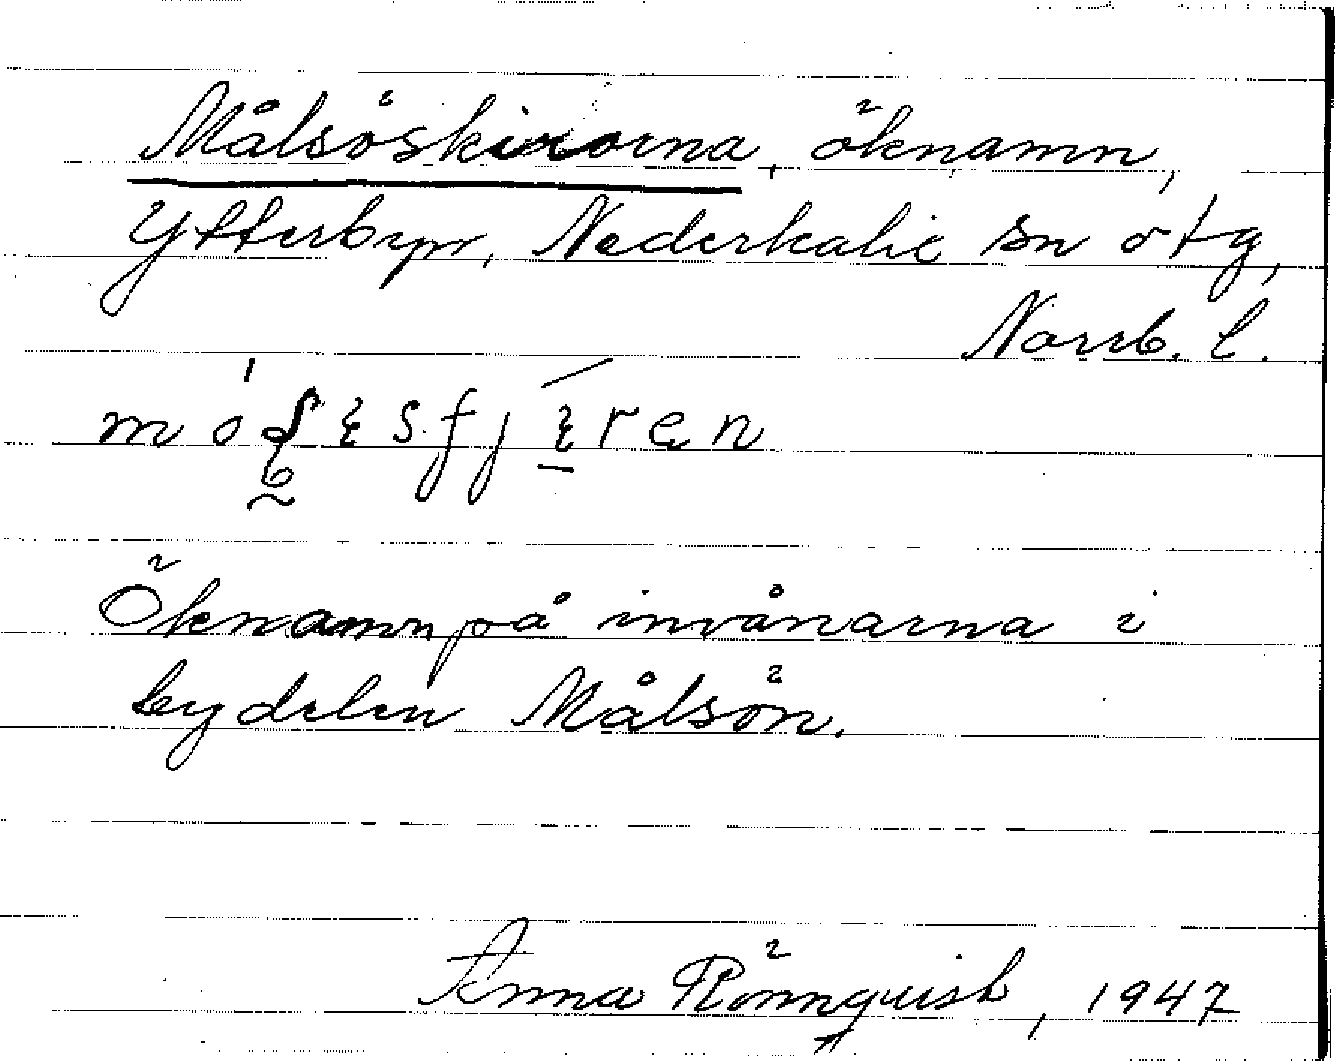 Målsöskixorna, öknamn,
Ytterbyn, Nederkalix sn o tg,
Norrb. l.
Öknamn på invånarna i
bydelen Målsön.
Anna Rönnquist, 1947